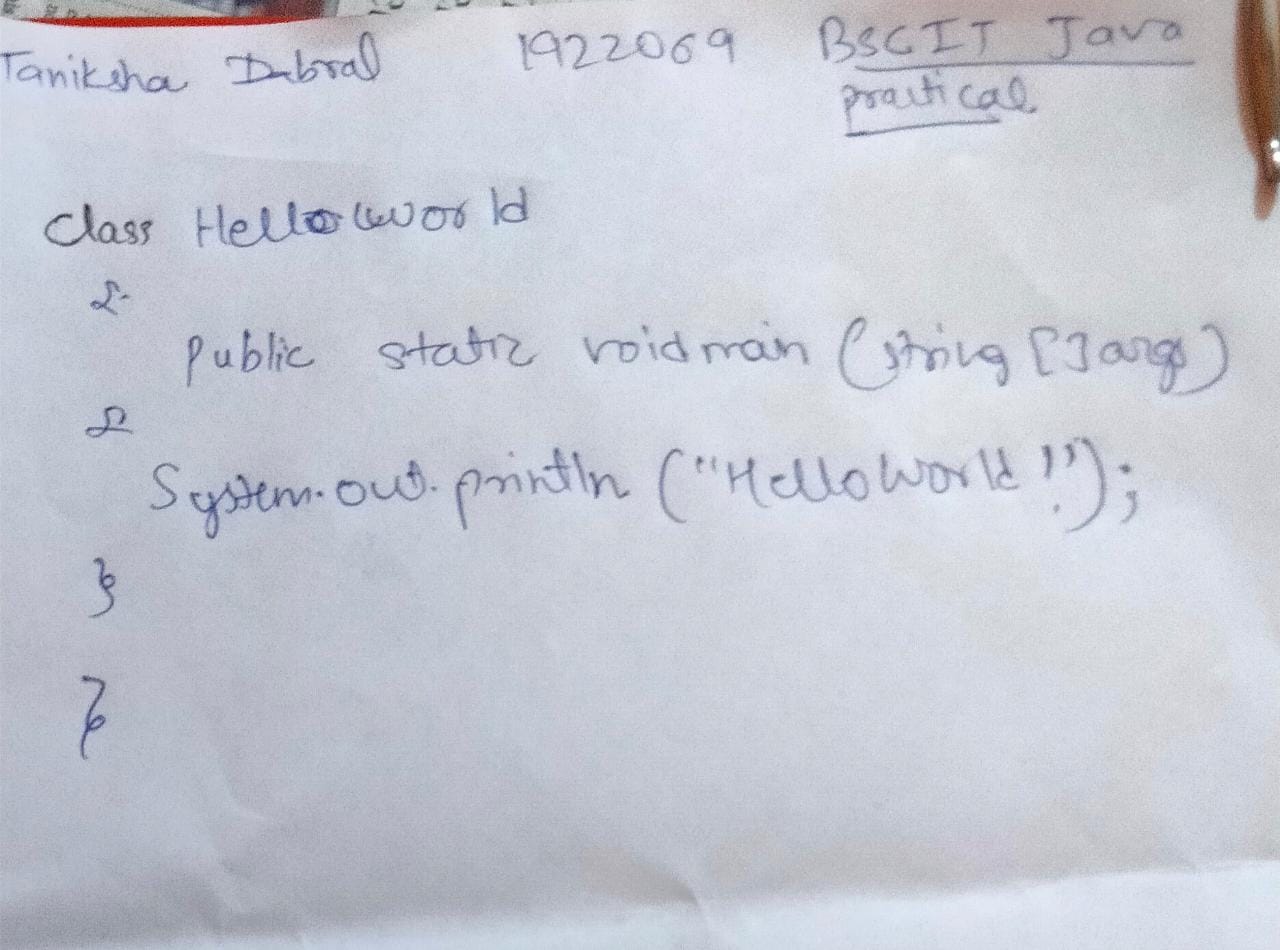 Taniksha Dabral 1922069 BSCIT Java
practical
class Helloworld
{
public static void main (string []args)
{
System.out.println ("Hello World!");
}
}